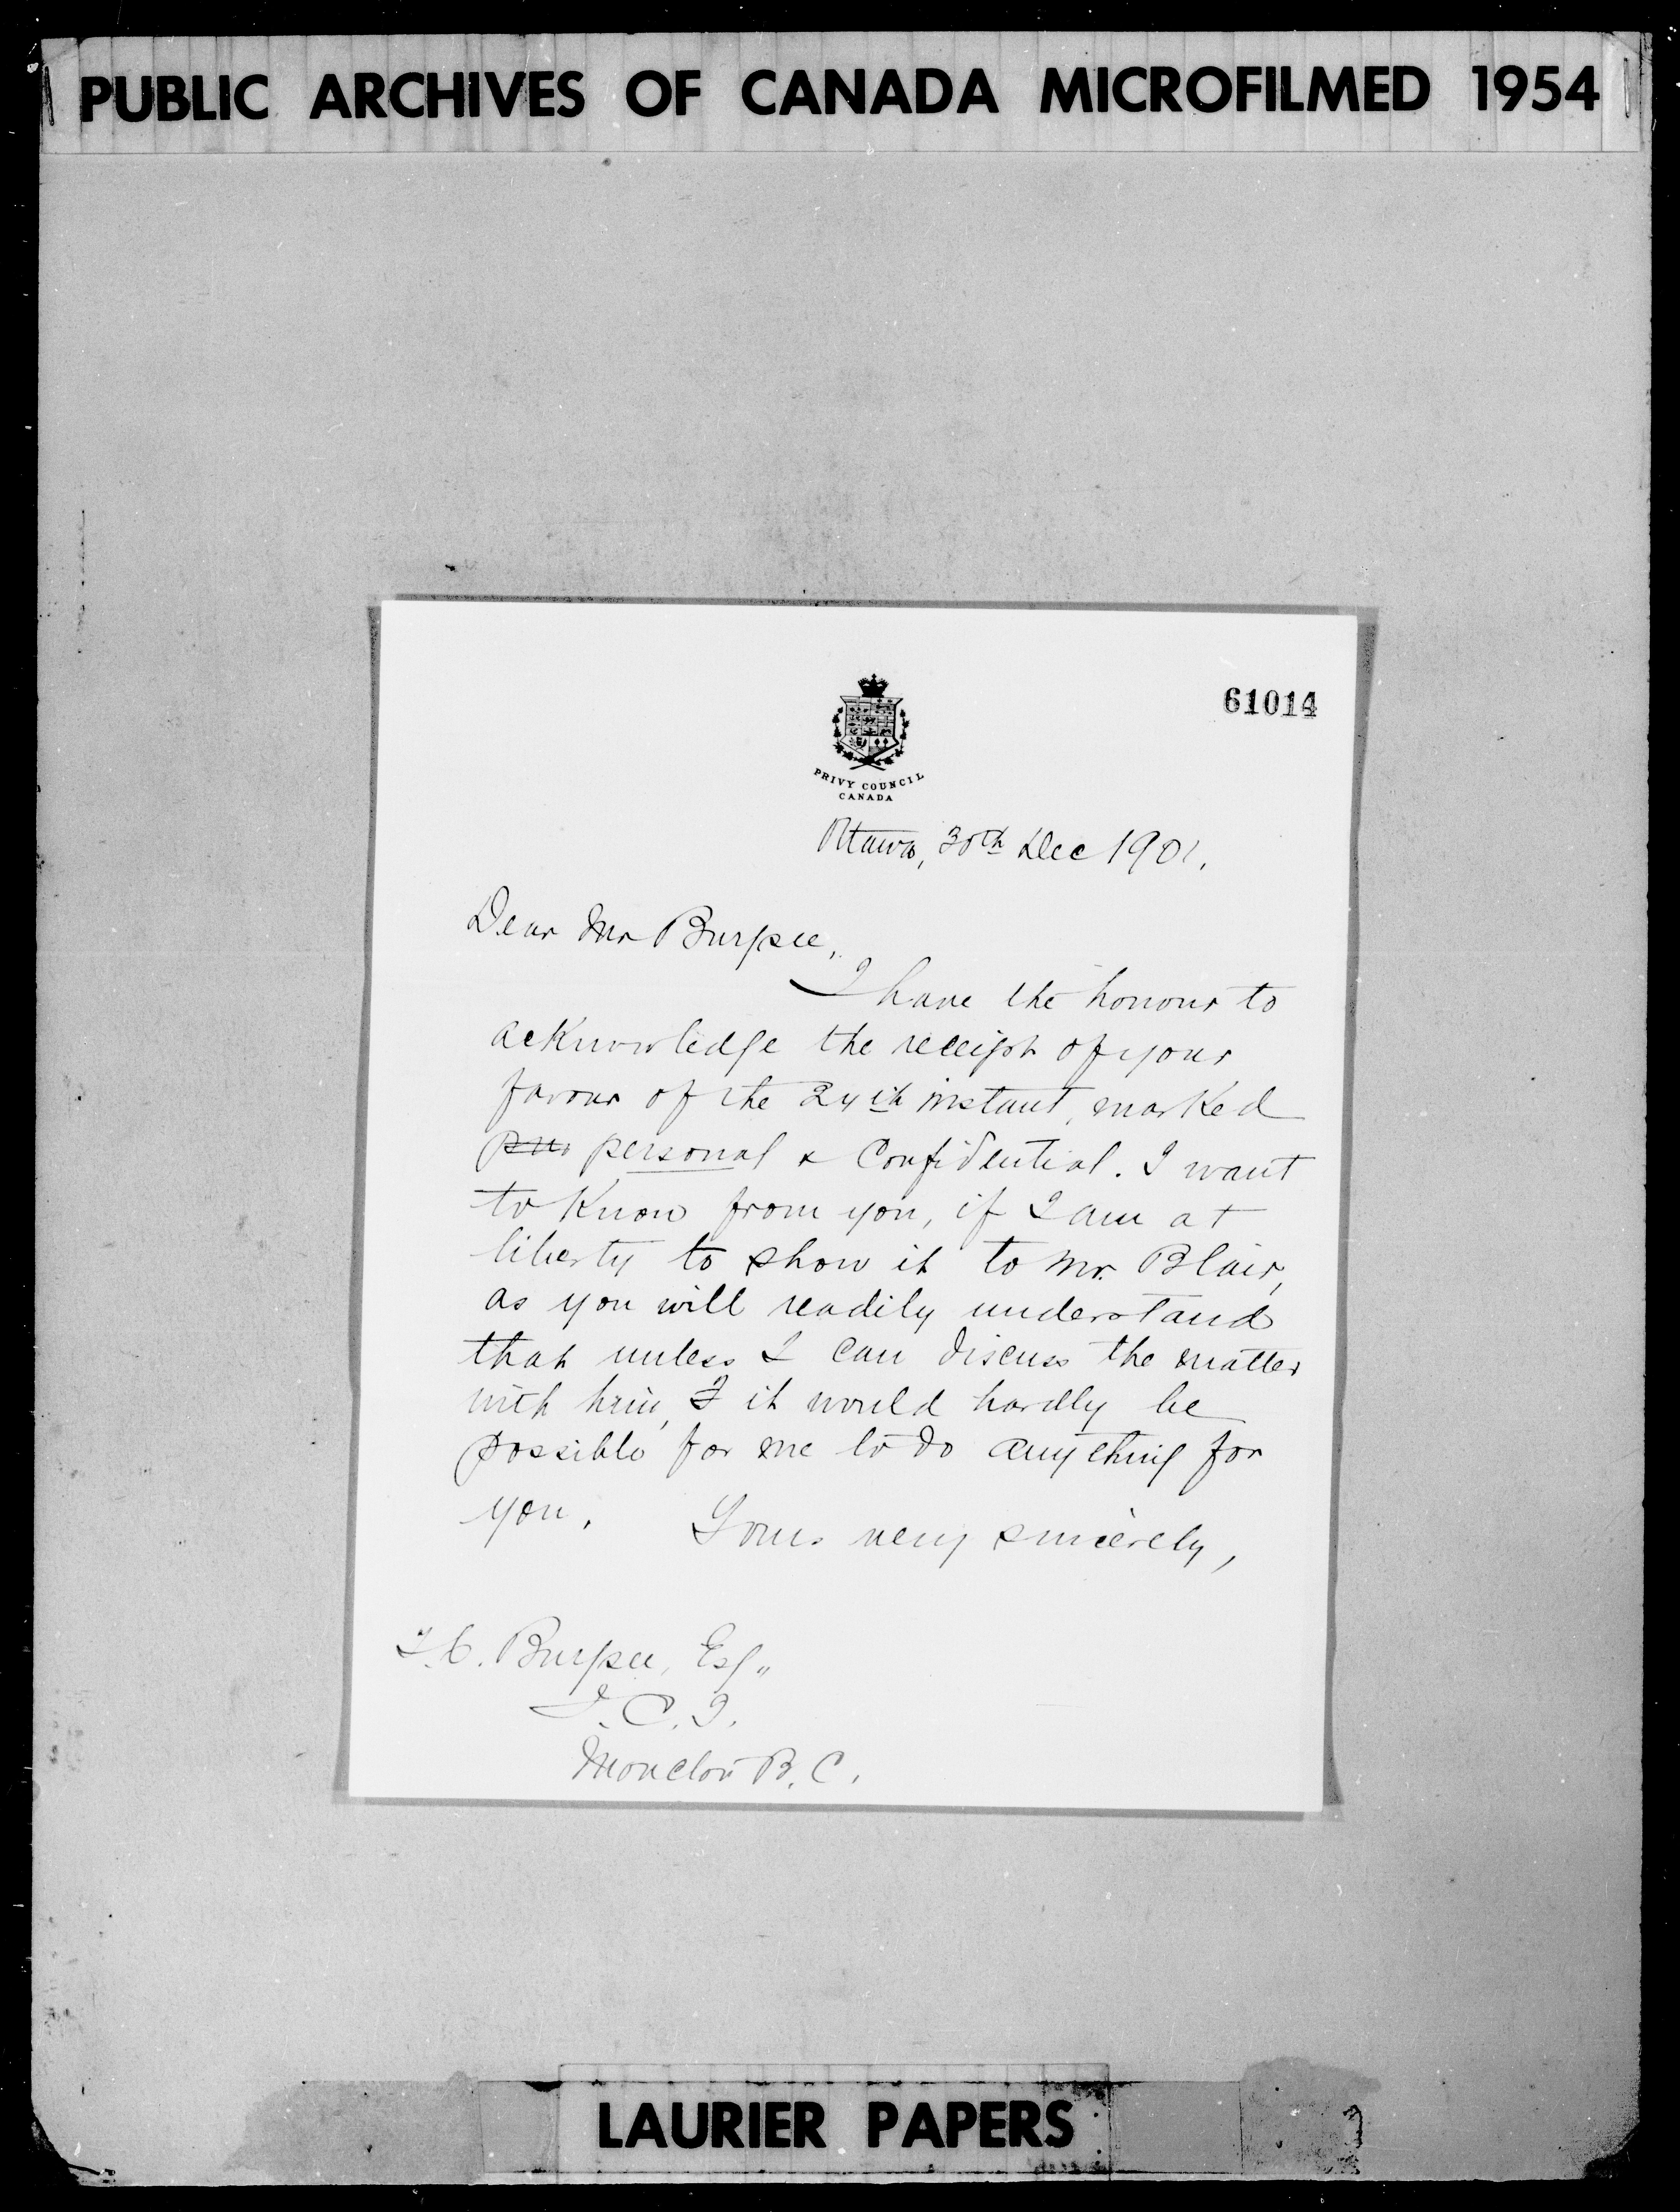 PUBLIC ARCHIVES OF CANADA MICROFILMED 1954
61014
PRIVY COUNCIL
CANADA
Ottawa, 30th Dec 1901.
Dear Mr Burpee,
I have the honour to
acknowledge the receipt of your
favour of the 24th instant, marked
personal & Confidential. I want
to know from you, if I am at
liberty to show it to Mr. Blair,
as you will readily understand
that unless I can discuss the matter
with him, I it would hardly be
possible for me to do anything for
you. Yours very sincerely,
T.C. Burpee, Esq.,
Moncton B.C.
LAURIER PAPERS